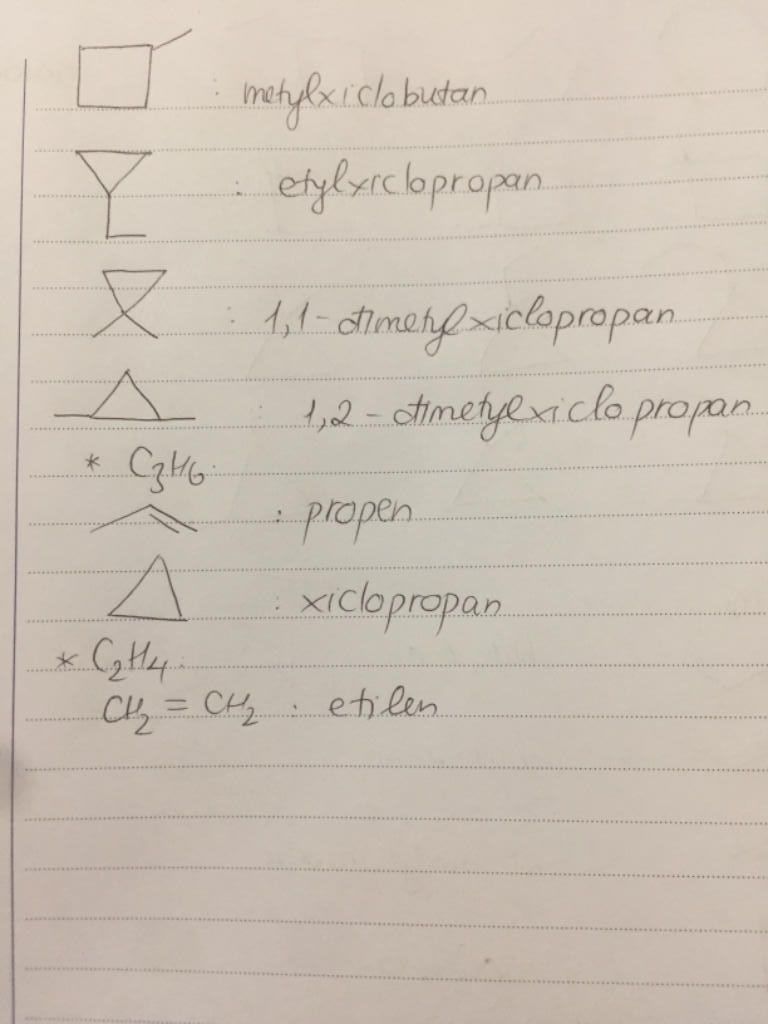 : metylxiclobutan
: etylxiclopropan
: 1,1-đimetylxiclopropan
: 1,2-đimetylxiclopropan
* C3H6.
: propen
: xiclopropan
* C2H4.
CH2 = CH2 : etilen